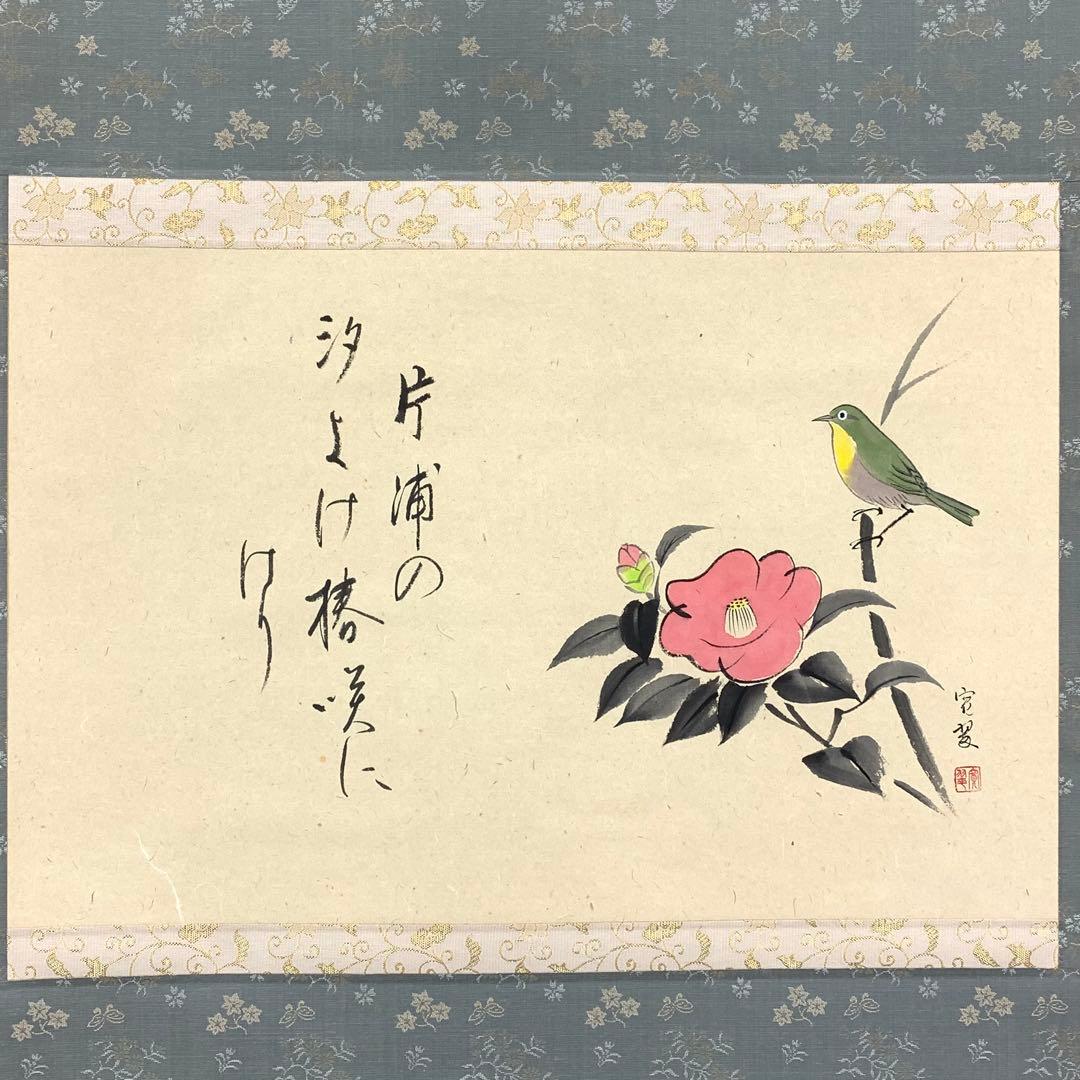 片浦の
汐よけ椿咲に
けり
寛翠